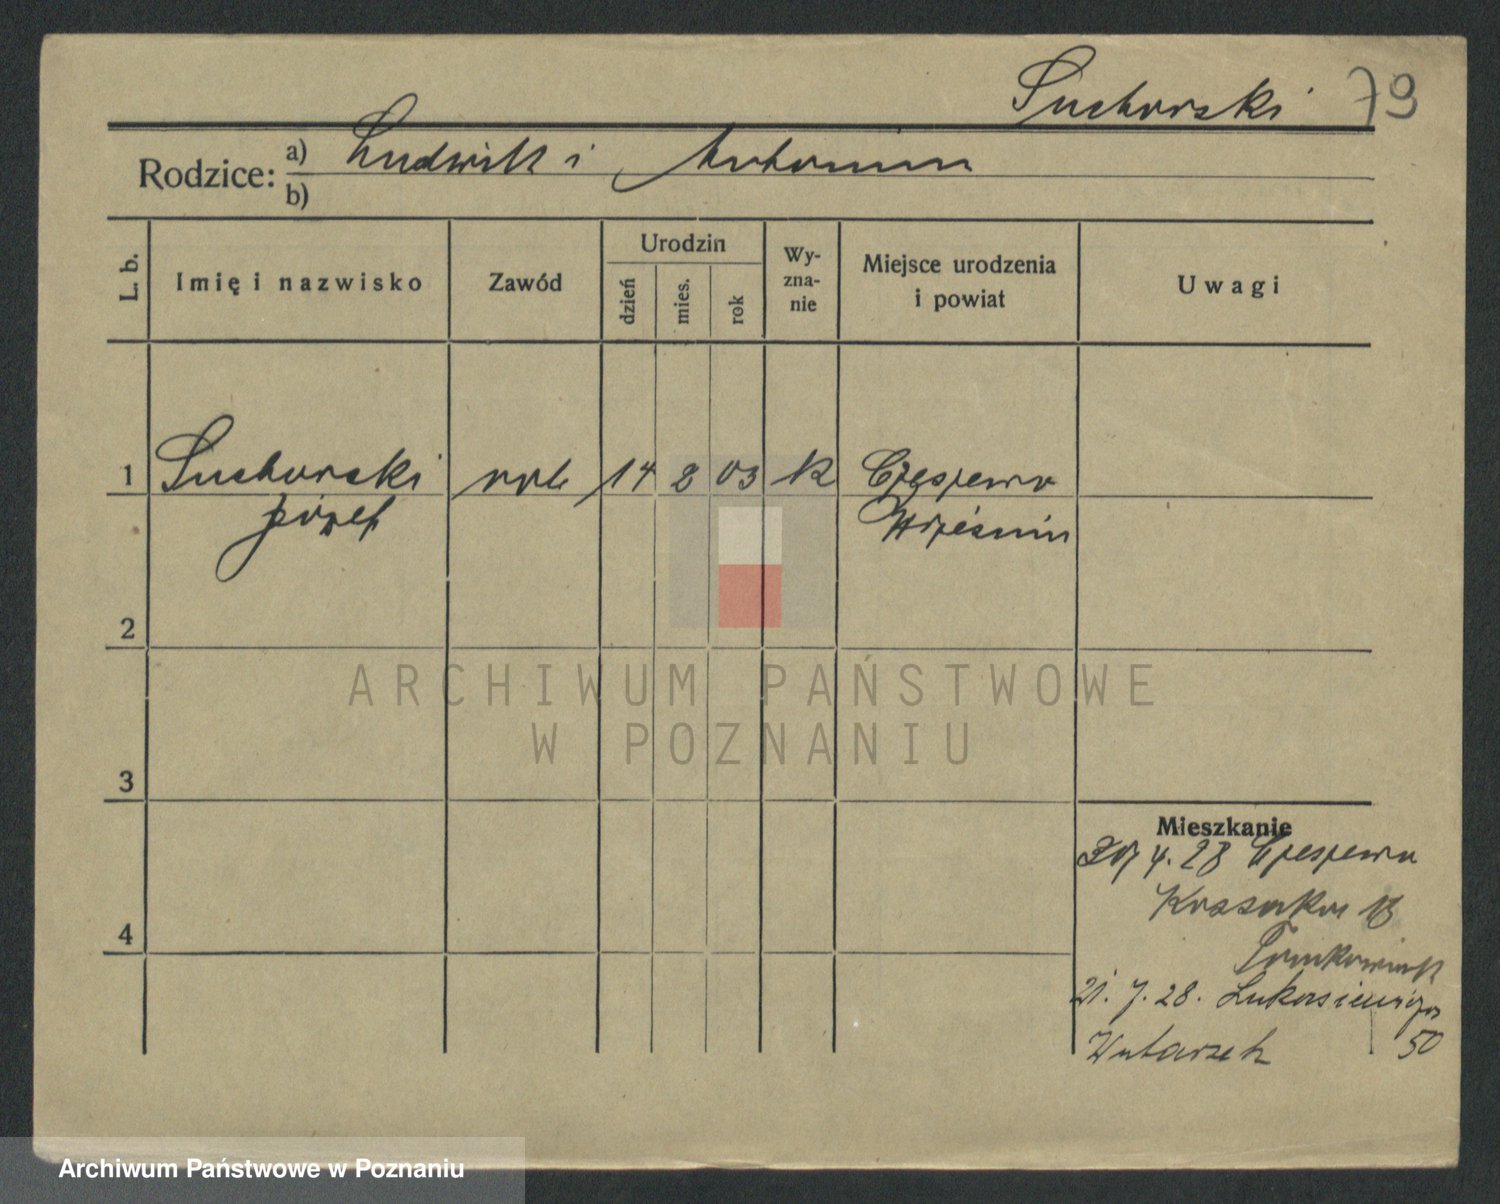 Suchorski 79
Rodzice: a) Ludwik i Antonina
b)
L. b.
Imię i nazwisko
Zawód
Urodzin
dzień
mies.
rok
Wy-
zna-
nie
Miejsce urodzenia
i powiat
Uwagi
1 Suchorski rob 14 2 03 K Czeszewo
Józef Września
2
ARCHIWUM PAŃSTWOWE
W POZNANIU
3
Mieszkanie
4. 28 Czeszewo
4
21. 7. 28. Łukasiewicza
50
Archiwum Państwowe w Poznaniu